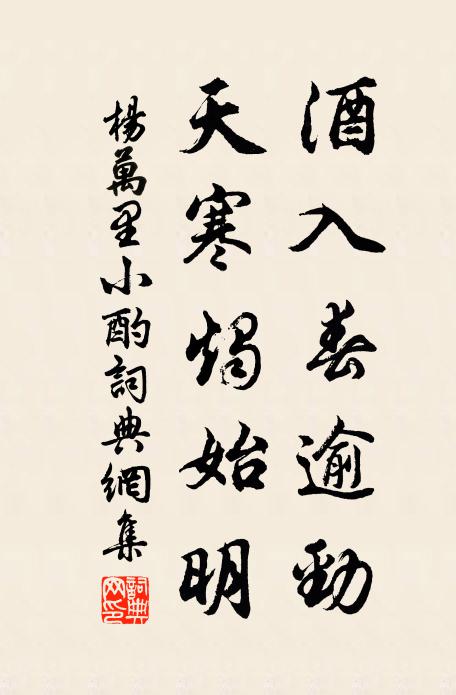 酒入春逾勁
天寒燭始明
楊萬里小酌詞典網集
詞典
网印